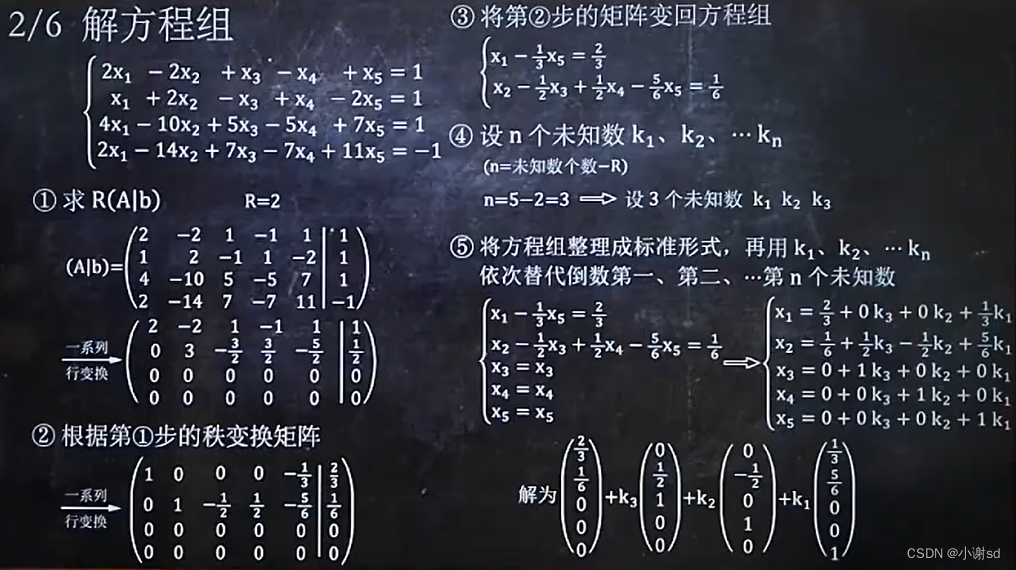 2/6 解方程组
2x₁ − 2x₂ + x₃ − x₄ + x₅ = 1
x₁ + 2x₂ − x₃ + x₄ − 2x₅ = 1
4x₁ − 10x₂ + 5x₃ − 5x₄ + 7x₅ = 1
2x₁ − 14x₂ + 7x₃ − 7x₄ + 11x₅ = −1
① 求 R(A|b) R=2
(A|b)=
2 −2 1 −1 1 | 1
1 2 −1 1 −2 | 1
4 −10 5 −5 7 | 1
2 −14 7 −7 11 | −1
一系列
行变换
2 −2 1 −1 1 | 1
0 3 −3/2 3/2 −5/2 | 1/2
0 0 0 0 0 | 0
0 0 0 0 0 | 0
② 根据第①步的秩变换矩阵
一系列
行变换
1 0 0 0 −1/3 | 2/3
0 1 −1/2 1/2 −5/6 | 1/6
0 0 0 0 0 | 0
0 0 0 0 0 | 0
③ 将第②步的矩阵变回方程组
x₁ − 1/3 x₅ = 2/3
x₂ − 1/2 x₃ + 1/2 x₄ − 5/6 x₅ = 1/6
④ 设 n 个未知数 k₁、k₂、⋯ kₙ
(n=未知数个数−R)
n=5−2=3 ⟹ 设 3 个未知数 k₁ k₂ k₃
⑤ 将方程组整理成标准形式，再用 k₁、k₂、⋯ kₙ
依次替代倒数第一、第二、⋯第 n 个未知数
x₁ − 1/3 x₅ = 2/3
x₂ − 1/2 x₃ + 1/2 x₄ − 5/6 x₅ = 1/6
x₃ = x₃
x₄ = x₄
x₅ = x₅
⟹
x₁ = 2/3 + 0 k₃ + 0 k₂ + 1/3 k₁
x₂ = 1/6 + 1/2 k₃ − 1/2 k₂ + 5/6 k₁
x₃ = 0 + 1 k₃ + 0 k₂ + 0 k₁
x₄ = 0 + 0 k₃ + 1 k₂ + 0 k₁
x₅ = 0 + 0 k₃ + 0 k₂ + 1 k₁
解为 (2/3 1/6 0 0 0) +k₃ (0 1/2 1 0 0) +k₂ (0 −1/2 0 1 0) +k₁ (1/3 5/6 0 0 1)
CSDN @小谢sd